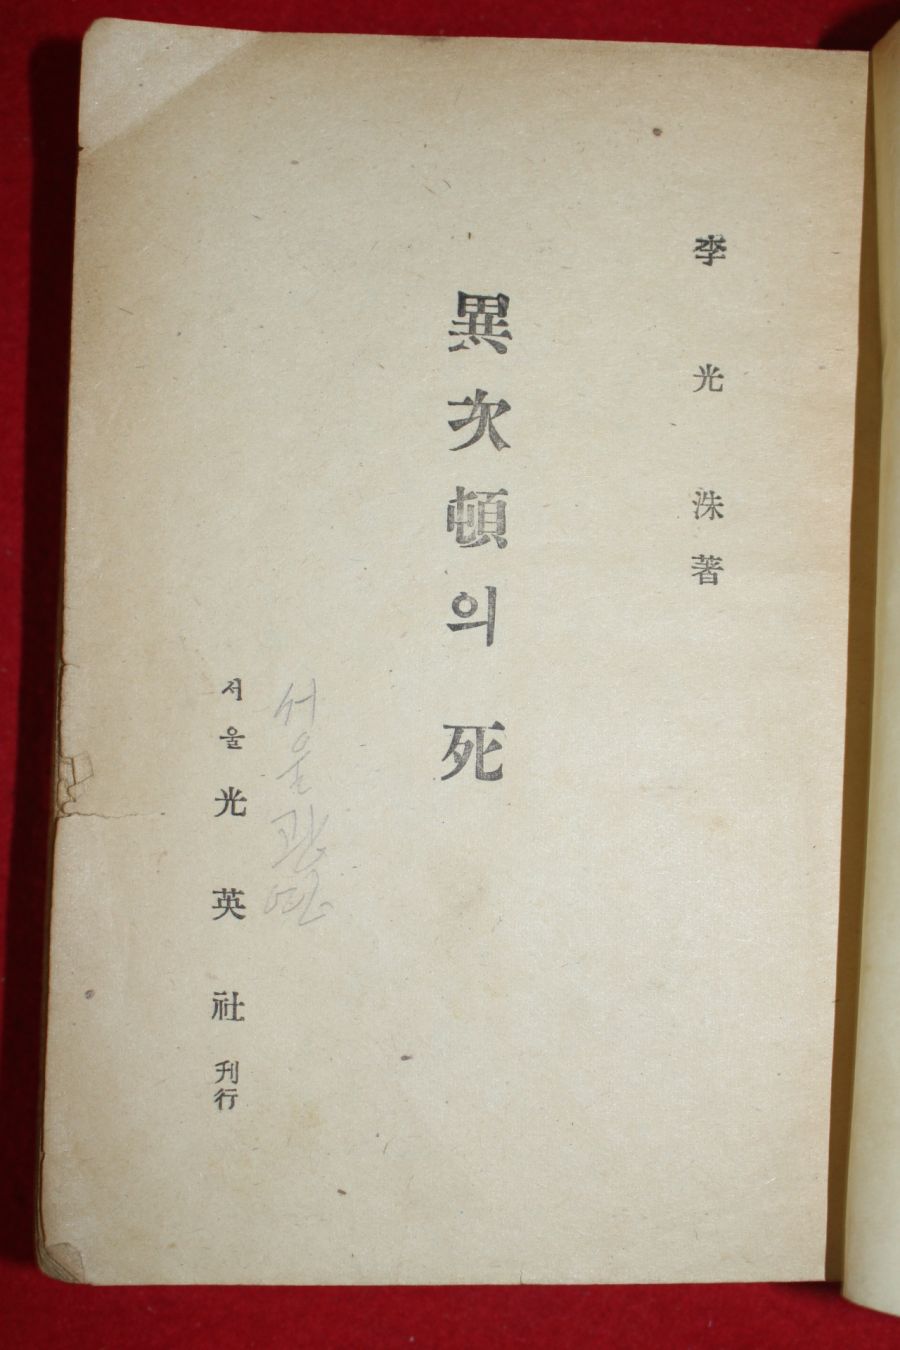 李光洙著
異次頓의 死
서울光
서울 光英社 刊行